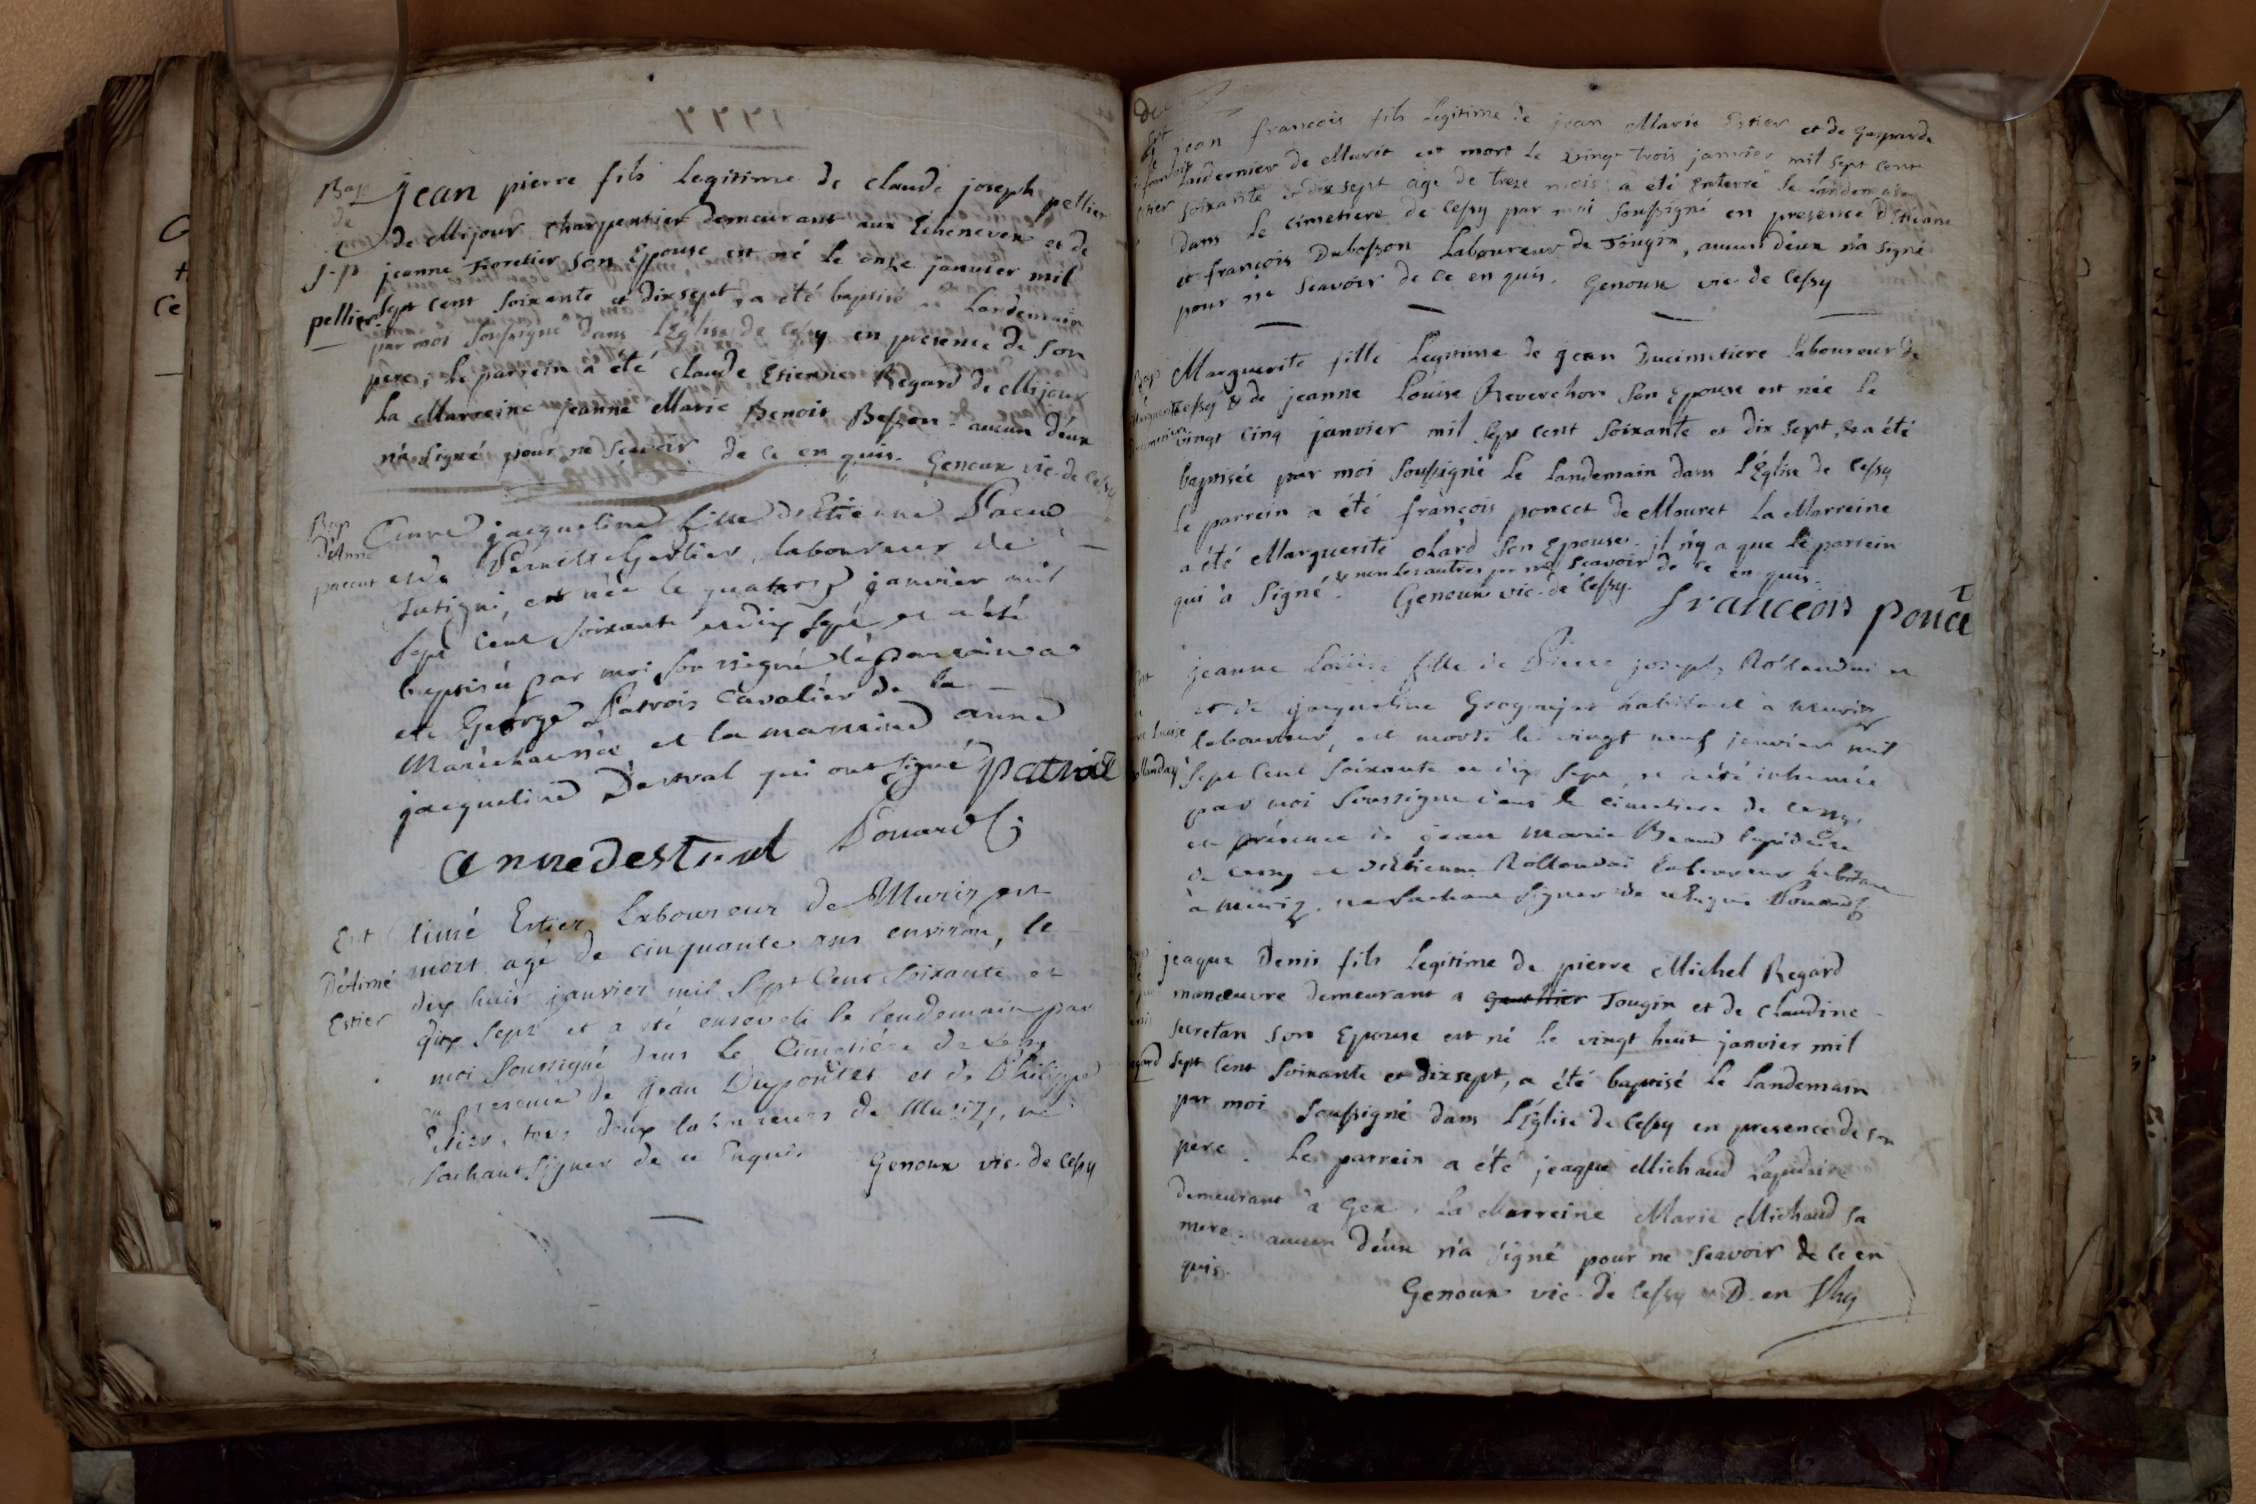 1777
Bap
de
j-p
pellier
jean pierre fils legitime de claude joseph pellier
de Mijour charpentier demeurant aux Echenevex et de
jeanne son Epouse est né le onze janvier mil
sept cent soixante et dixsept, a été baptisé le Landemain
par moi soussigné dans L'Eglise de Cessy en presence de son
pere, le parrein a été claude Etienne Regard de Mijoux
La Marreine jeanne Marie Benoit Besson. aucun d'eux
n'a signé pour ne scavoir de ce en quis. Genoux vic. de Cessy
Bap
D'Anne
pacut
Anne jacqueline fille d'Etienne
et de Pernette laboureur de
est née le quatorze janvier mil
sept cent soixante et dix sept et a été
baptisée par moi soussigné le parrain a
été George Patrois Cavalier de la
Maréchaussée et la marraine anne
jacqueline Destral qui ont signé patroit
Anne destral
Ent
D'Aimé
Estier
Aimé Estier Laboureur de Muriz est
mort agé de cinquante ans environ, le
dix huit janvier mil sept cent soixante et
dix sept et a été enseveli le lendemain par
moi soussigné dans le Cimetière de Cessy
en presence de jean Dupontet et de Philippe
Estier, tous deux laboureurs de Muriz, ne
sachant signer de ce Enquis Genoux vic. de Cessy
jean francois fils legitime de jean Marie Estier et de Gasparde
Landernier de Murit est mort le vingt trois janvier mil sept cent
soixante et dix sept age de treze mois a été enterré le Landemain
dans le cimetiere de Cessy par moi soussigné en presence d'Etiene
et françois Dubesson Laboureur de Tougin, aucun d'eux n'a signé
pour ne scavoir de ce en quis. Genoux vic. de Cessy
Marguerite fille Legitime de jean Ducimetiere laboureur de
Cessy & de jeanne Louise Reverchon son Epouse est née le
vingt cinq janvier mil sept cent soixante et dix sept, a été
baptisée par moi soussigné le Landemain dans l'Eglise de Cessy
le parrein a été françois poncet de Mouret La Marreine
a été Marguerite olard son Epouse. il n'y a que le parrein
qui a signé. & non les autres pr ne scavoir de ce en quis.
Genoux vic. de Cessy.
franceois poncet
Louise
jeanne Louise fille de Pierre joseph Rollandai
et de jacqueline habitant à Muriz
laboureur, est morte le vingt neuf janvier mil
sept cent soixante et dix sept et a été inhumée
par moi soussigné dans le cimetiere de Cessy,
en présence de jean Marie lapidaire
de Cessy et d'Etienne Rollandai laboureur habitant
à Muriz. ne sachant signer de ce Enquis
jeaque Denis fils legitime de pierre Michel Regard
manœuvre demeurant a Tougin et de claudine
secretan son Epouse est né le vingt huit janvier mil
sept cent soixante et dixsept, a été baptisé le landemain
par moi soussigné dans L'Eglise de Cessy en presence de son
père. Le parrein a été jeaque Michaud Lapidaire
demeurant à Gex, La Marreine Marie Michaud sa
mere. aucun d'eux n'a signé pour ne scavoir de ce en
quis.
Genoux vic. de Cessy D. en